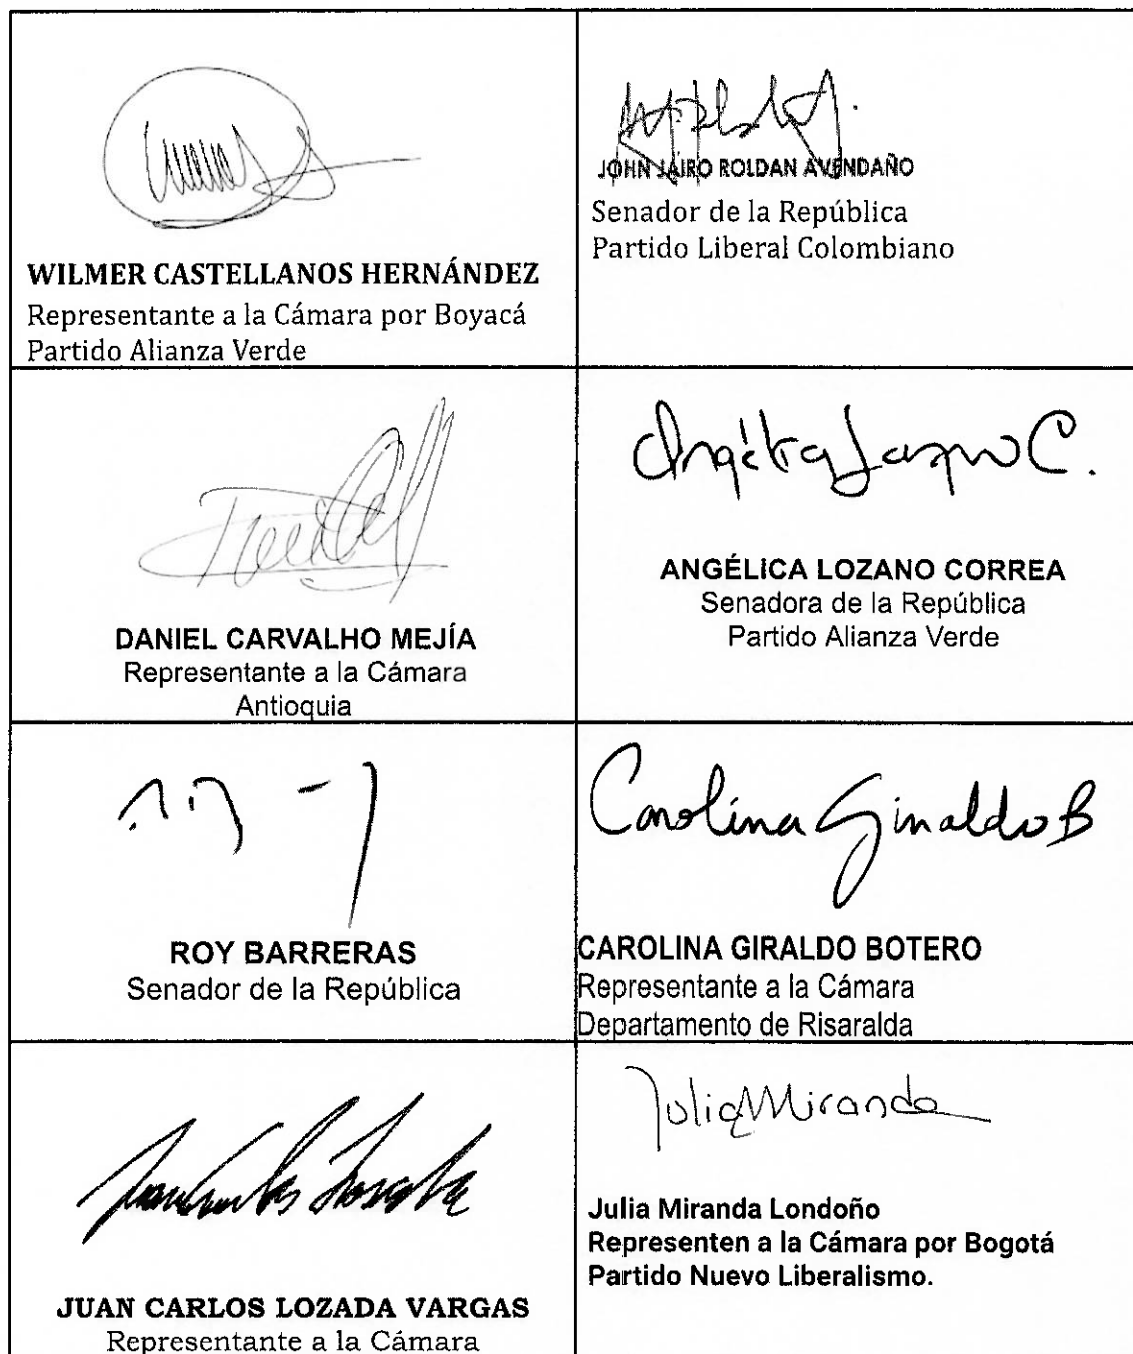 WILMER CASTELLANOS HERNÁNDEZ
Representante a la Cámara por Boyacá
Partido Alianza Verde
JOHN JAIRO ROLDAN AVENDAÑO
Senador de la República
Partido Liberal Colombiano
DANIEL CARVALHO MEJÍA
Representante a la Cámara
Antioquia
Angélica Lozano C.
ANGÉLICA LOZANO CORREA
Senadora de la República
Partido Alianza Verde
ROY BARRERAS
Senador de la República
Carolina Giraldo B
CAROLINA GIRALDO BOTERO
Representante a la Cámara
Departamento de Risaralda
Juan Carlos Lozada
JUAN CARLOS LOZADA VARGAS
Representante a la Cámara
Julia Miranda
Julia Miranda Londoño
Representen a la Cámara por Bogotá
Partido Nuevo Liberalismo.